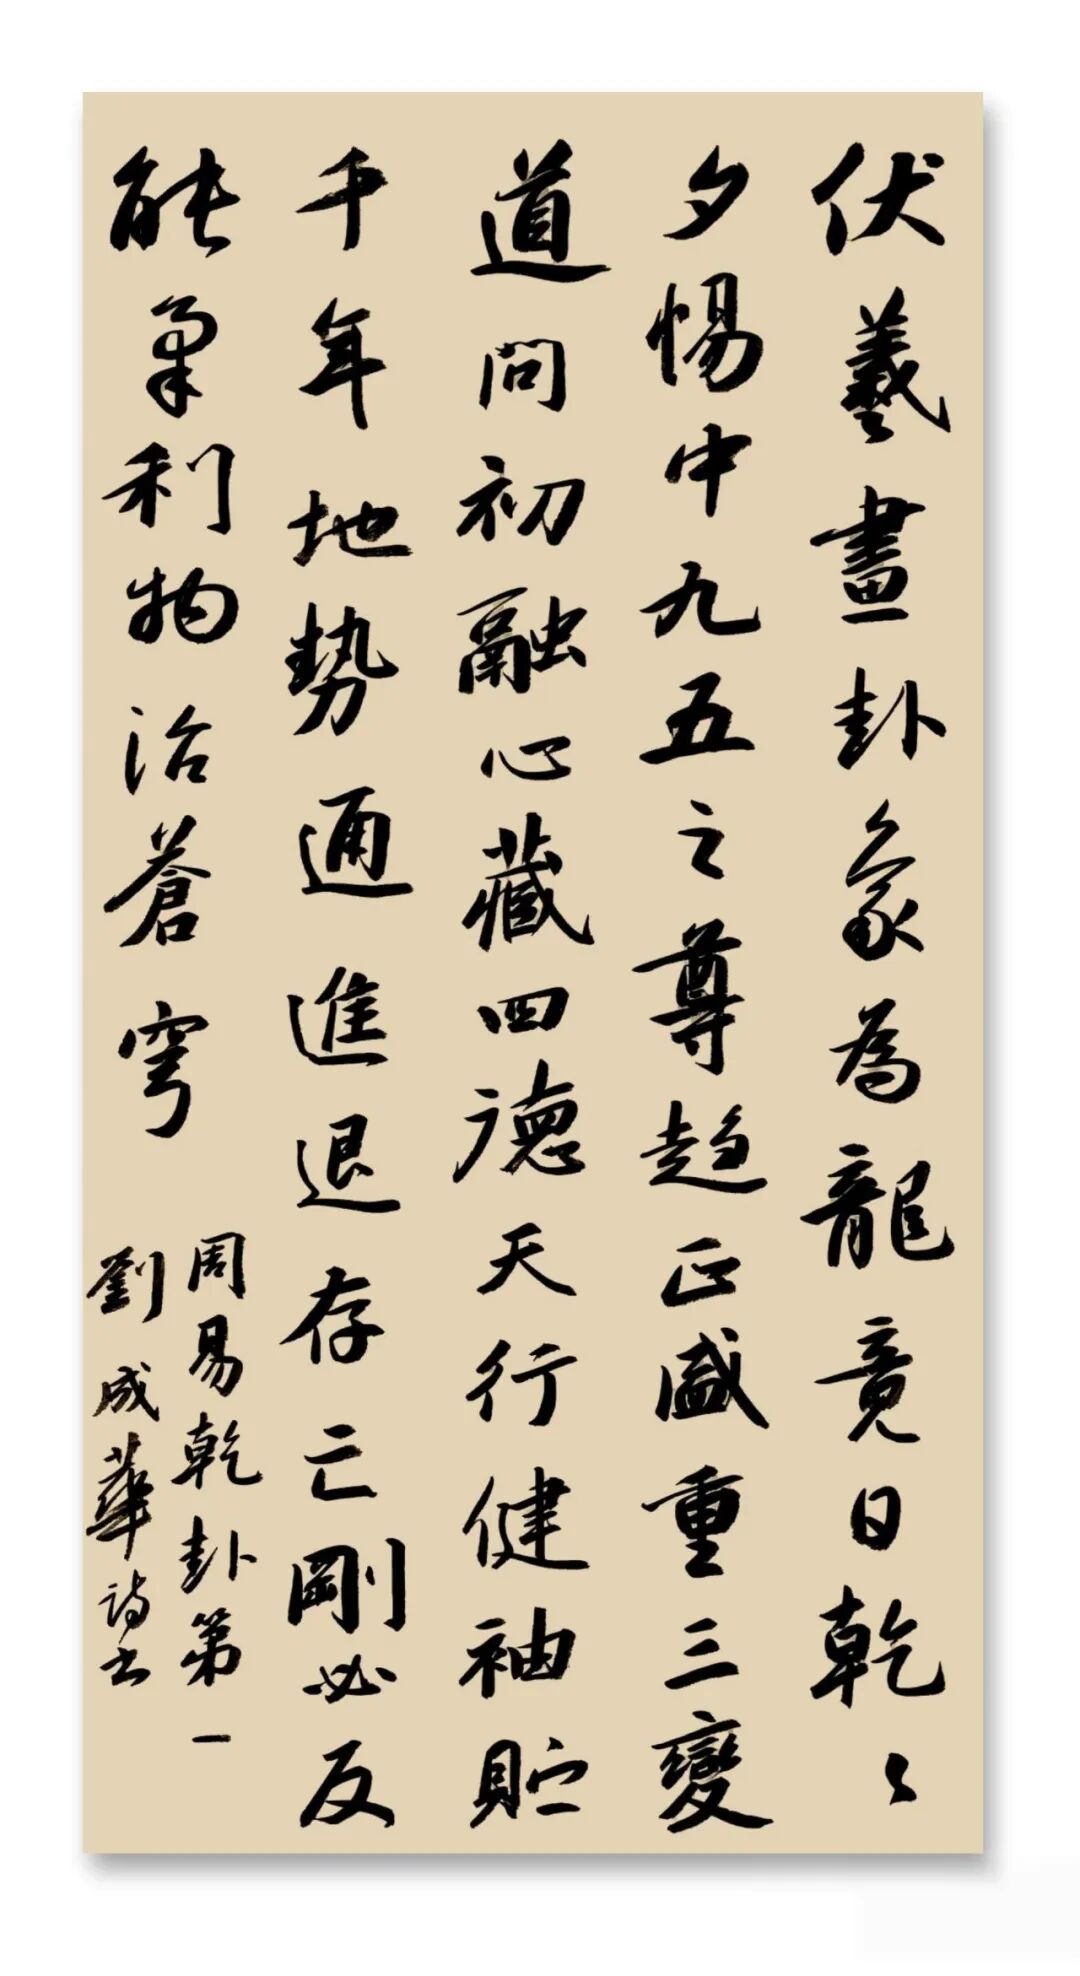 伏羲畫卦象為龍竟日乾〻
夕惕中九五之尊趋正盛重三變
道問初融心藏四德天行健袖貯
千年地势通進退存亡剛必反
能柔利物治蒼穹
周易乾卦第一
劉成華诗书